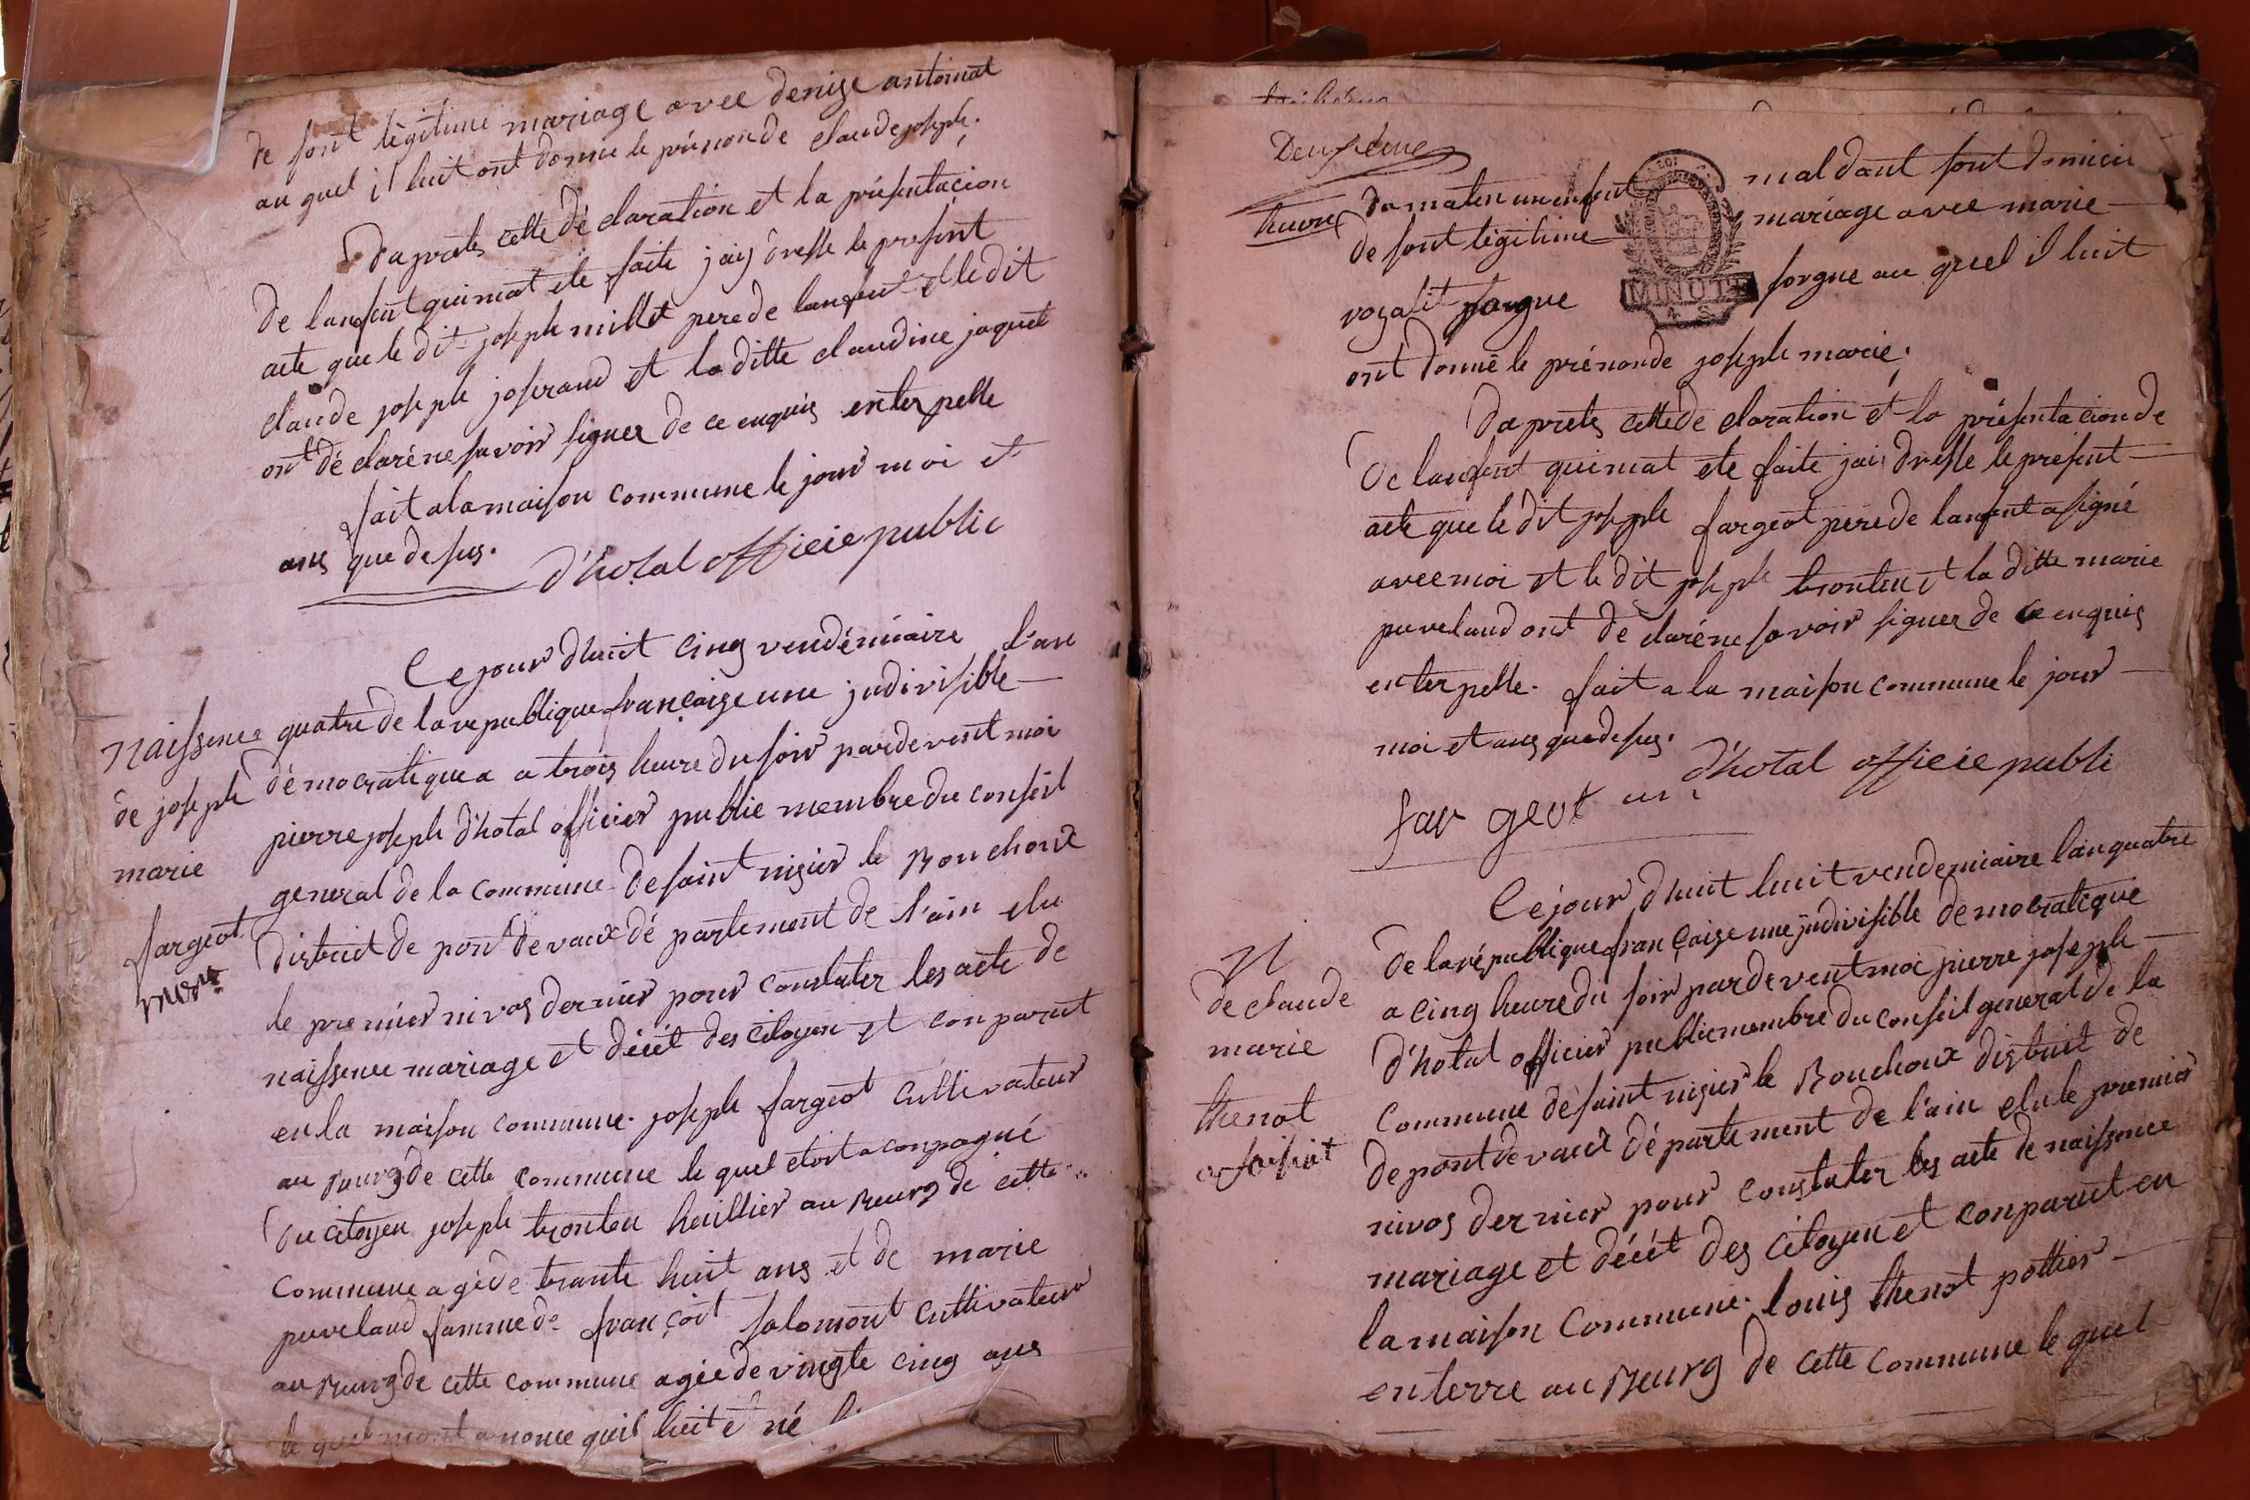 de sont légitime mariage avec denise antoinat
au quel il luit ont donne le prénonde claude joseph.
Daprets cette dé claration et la présentacion
de lanfent quimat ete faite jaij dresse le present
acte que le dit joseph millet perede lanfent et ledit
claude joseph joserand et laditte claudine jaquet
ont dé claréne savoir signer de ce enquis enterpelle
fait ala maison commune le jour moi et
ans que desus.
d'hotal officie public
Ce jour d'huit cinq vendémiaire l'an
quatre de la republique française une jndivisible
démocratique a a trois heure du soir pardevent moi
pierre joseph d'hotal officier public membre du conseil
general de la commune de saint nisier le Bouchoux
district de pont de vaux dé partement de l'ain elu
le premier nivos dernier pour constater les acte de
naissence mariage et décét des citoyen et conparut
en la maison commune. joseph fargeot cultivateur
au Bourg de cette commune le quel etoit aconpagné
du citoyen joseph tronteu huillier au Bourg de cette
commune agéde trante huit ans et de marie
puvelaud famme de françoit salomont cultivateur
au Bourg de cette commune agée de vingte cinq ans
le quel anonce quil luit é né
Naissence
de joseph
marie
fargeot
mort
Deuxieme
heure
du matin un enfent
mal dant sont domicil
de sont légitime
mariage avec marie
LOI
MINUTE
forgue au quel il luit
ont donné le prénonde joseph marie.
Daprets cette de claration et la présentacion de
de lanfent quimat ete faite jai dresse le présent
acte que le dit joseph fargeot perede lanfent a signé
avec moi et le dit joseph tronteu et la ditte marie
puvelaud ont dé claréne savoir signer de ce enquis
enterpelle. fait a la maison commune le jour
moi et ans que desus.
far geot
d'hotal officie publi
Ce jour d'huit huit vendemiaire l'an quatre
de la république française une jndivisible démocratique
a cinq heure du soir pardevent moi pierre joseph
d'hotal officier public membre du conseil general de la
commune de saint nisier le Bouchoux district de
de pont de vaux dé partement de l'ain elu le premier
nivos dernier pour constater les acte de naissence
mariage et décét des citoyen et conparut en
la maison commune. louis thenot pottier
en terre au Bourg de cette commune le quel
N
de claude
marie
thenot